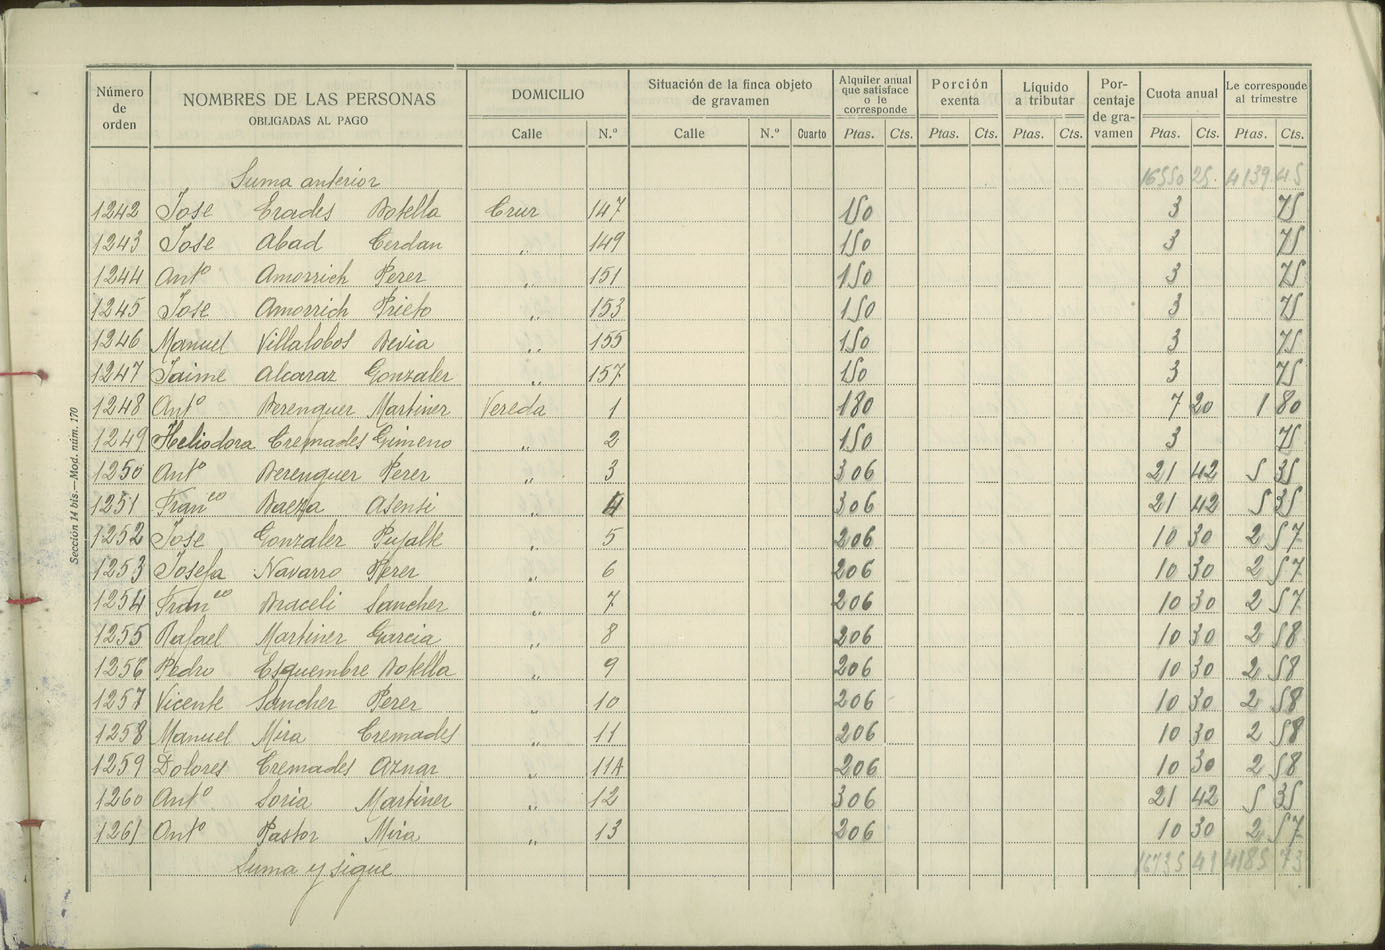 Número de orden NOMBRES DE LAS PERSONAS OBLIGADAS AL PAGO DOMICILIO Situación de la finca objeto de gravamen Alquiler anual que satisface o le corresponde Porción exenta Líquido a tributar Porcentaje de gravamen Cuota anual Le corresponde al trimestre
Calle N.º Calle N.º Cuarto Ptas. Cts. Ptas. Cts. Ptas. Cts. Ptas. Cts. Ptas. Cts.
Suma anterior 16550 25 4139 45
1242 Jose Erades Botella Cruz 147 150 3 75
1243 Jose Abad Cerdan " 149 150 3 75
1244 Antº Amorrich Perez " 151 150 3 75
1245 Jose Amorrich Prieto " 153 150 3 75
1246 Manuel Villalobos Bevia " 155 150 3 75
1247 Jaime Alcaraz Gonzalez " 157 150 3 75
1248 Antº Berenguer Martinez Vereda 1 180 7 20 1 80
1249 Heliodora Cremades Gimeno " 2 150 3 75
1250 Antº Berenguer Perez " 3 306 21 42 5 35
1251 Franco Baeza Asensi " 4 306 21 42 5 35
1252 Jose Gonzalez Pujalte " 5 206 10 30 2 57
1253 Josefa Navarro Perez " 6 206 10 30 2 57
1254 Franco Braceli Sanchez " 7 206 10 30 2 57
1255 Rafael Martinez Garcia " 8 206 10 30 2 58
1256 Pedro Esquembre Botella " 9 206 10 30 2 58
1257 Vicente Sanchez Perez " 10 206 10 30 2 58
1258 Manuel Mira Cremades " 11 206 10 30 2 58
1259 Dolores Cremades Aznar " 11A 206 10 30 2 58
1260 Antº Soria Martinez " 12 306 21 42 5 35
1261 Antº Pastor Mira " 13 206 10 30 2 57
Suma y sigue 16735 41 4185 73
Sección 14 bis.—Mod. núm. 170